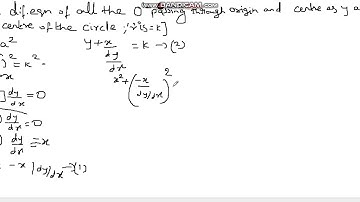 dif.eqn of all the O passing through origin and centre as y a
centre of the circle
a²
)² = k² -
x
] dy/dx = 0
) dy/dx = 0
) dy/dx = x
= -x/dy/dx → (1)
y + x/(dy/dx) = k → (2)
x² + (-x/(dy/dx))²